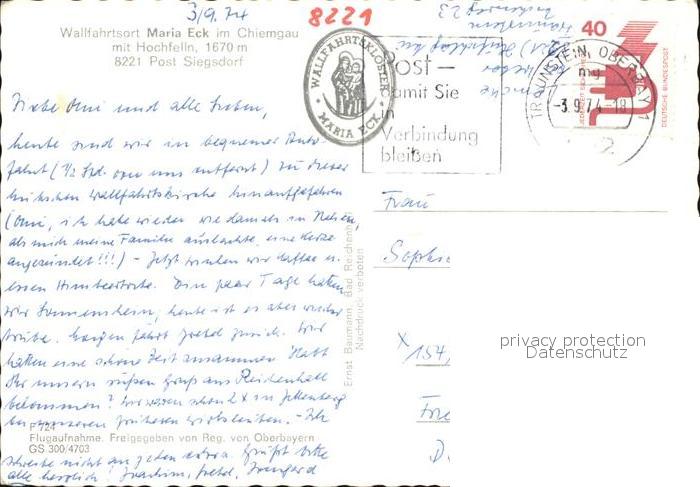 3/9.74
8221
Wallfahrtsort Maria Eck im Chiemgau
mit Hochfelln, 1670 m
8221 Post Siegsdorf
WALLFAHRTSKLOSTER
MARIA ECK
Post –
damit Sie
in
Verbindung
bleiben
TRAUNSTEIN, OBERBAY 1
mg
-3.9.74-18
40
JEDERZEIT SICHERHEIT
DEUTSCHE BUNDESPOST
Liebe Omi und alle Lieben,
heute sind wir in bequemer Auto-
fahrt (1/2 Std. von uns entfernt) zu dieser
hübschen Wallfahrtskirche hinaufgefahren
(Omi, ich habe wieder wie damals in
als mich meine Familie auslachte, eine Kerze
angezündet!!!) – Jetzt trinken wir Kaffee u.
essen Himbeertorte. Ein paar Tage hatten
wir Sonnenschein, heute ist es aber wieder
trübe. Morgen fährt zurück. Wir
hatten eine schöne Zeit zusammen. Habt
Ihr unsern süßen Gruß aus Reichenhall
bekommen? Wir waren schon 2 x in
bei unseren früheren Wirtsleuten. – Ich
schreibe nicht an jeden extra. Grüßt bitte
alle herzlich! Joachim, Irmgard
Frau
Sophie
154,
D.
Ernst Baumann, Bad Reichenhall
Nachdruck verboten
F 724
Flugaufnahme. Freigegeben von Reg. von Oberbayern
GS 300/4703
privacy protection
Datenschutz